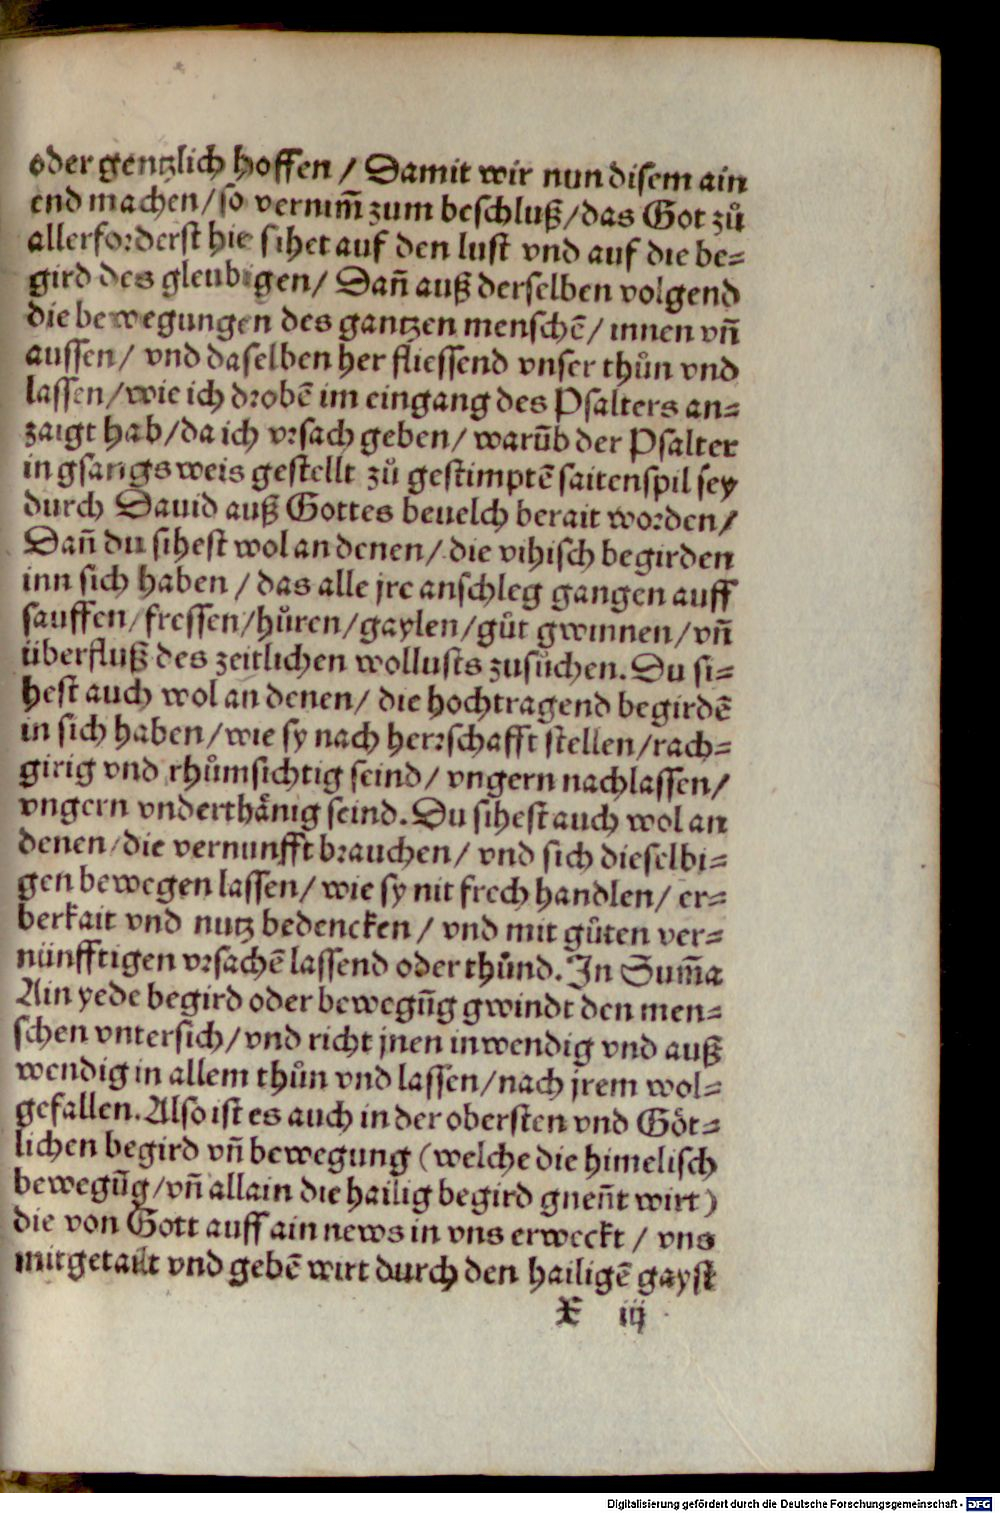 oder gentzlich hoffen / Damit wir nun disem ain
end machen / so vernim̃ zum beschluß / das Got zů
allerforderst hie sihet auf den lust vnd auf die be⸗
gird des gleubigen / Dañ auß derselben volgend
die bewegungen des gantzen menschẽ / innen vñ
aussen / vnd daselben her fliessend vnser thůn vnd
lassen / wie ich drobẽ im eingang des Psalters an⸗
zaigt hab / da ich vrsach geben / warũb der Psalter
in gsangs weis gestellt zů gestimptẽ saitenspil sey
durch Dauid auß Gottes beuelch berait worden /
Dañ du sihest wol an denen / die vihisch begirden
inn sich haben / das alle jre anschleg gangen auff
sauffen / fressen / hůren / gaylen / gůt gwinnen / vñ
überfluß des zeitlichen wollusts zusůchen. Du si⸗
hest auch wol an denen / die hochtragend begirdẽ
in sich haben / wie sy nach herrschafft stellen / rach⸗
girig vnd rhůmsichtig seind / vngern nachlassen /
vngern vnderthånig seind. Du sihest auch wol an
denen / die vernunfft brauchen / vnd sich dieselbi⸗
gen bewegen lassen / wie sy nit frech handlen / er⸗
berkait vnd nutz bedencken / vnd mit gůten ver⸗
nünfftigen vrsachẽ lassend oder thůnd. In Sum̃a
Ain yede begird oder bewegũg gwindt den men⸗
schen vntersich / vnd richt jnen inwendig vnd auß
wendig in allem thůn vnd lassen / nach jrem wol⸗
gefallen. Also ist es auch in der obersten vnd Gőt⸗
lichen begird vñ bewegung (welche die himelisch
bewegũg / vñ allain die hailig begird gneñt wirt)
die von Gott auff ain news in vns erweckt / vns
mitgetailt vnd gebẽ wirt durch den hailigẽ gayst
X iij
Digitalisierung gefördert durch die Deutsche Forschungsgemeinschaft - DFG